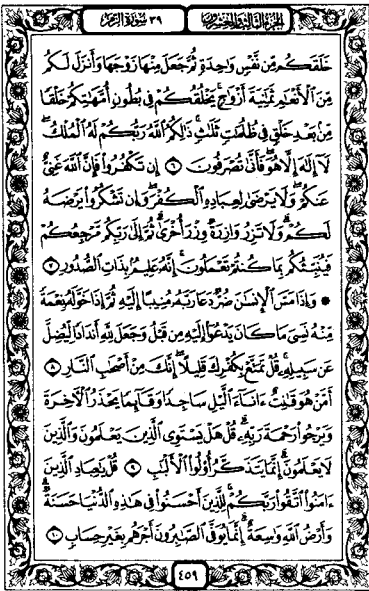 الجزء الثالث والعشرون
٣٩ سورة الزمر
خَلَقَكُم مِّن نَّفْسٍ وَٰحِدَةٍ ثُمَّ جَعَلَ مِنْهَا زَوْجَهَا وَأَنزَلَ لَكُم
مِّنَ ٱلْأَنْعَٰمِ ثَمَٰنِيَةَ أَزْوَٰجٍ ۚ يَخْلُقُكُمْ فِى بُطُونِ أُمَّهَٰتِكُمْ خَلْقًا
مِّنۢ بَعْدِ خَلْقٍ فِى ظُلُمَٰتٍ ثَلَٰثٍ ۚ ذَٰلِكُمُ ٱللَّهُ رَبُّكُمْ لَهُ ٱلْمُلْكُ ۖ
لَآ إِلَٰهَ إِلَّا هُوَ ۖ فَأَنَّىٰ تُصْرَفُونَ ٦ إِن تَكْفُرُوا۟ فَإِنَّ ٱللَّهَ غَنِىٌّ
عَنكُمْ ۖ وَلَا يَرْضَىٰ لِعِبَادِهِ ٱلْكُفْرَ ۖ وَإِن تَشْكُرُوا۟ يَرْضَهُ
لَكُمْ ۗ وَلَا تَزِرُ وَازِرَةٌ وِزْرَ أُخْرَىٰ ۗ ثُمَّ إِلَىٰ رَبِّكُم مَّرْجِعُكُمْ
فَيُنَبِّئُكُم بِمَا كُنتُمْ تَعْمَلُونَ ۚ إِنَّهُۥ عَلِيمٌۢ بِذَاتِ ٱلصُّدُورِ ٧
۞ وَإِذَا مَسَّ ٱلْإِنسَٰنَ ضُرٌّ دَعَا رَبَّهُۥ مُنِيبًا إِلَيْهِ ثُمَّ إِذَا خَوَّلَهُۥ نِعْمَةً
مِّنْهُ نَسِىَ مَا كَانَ يَدْعُوٓا۟ إِلَيْهِ مِن قَبْلُ وَجَعَلَ لِلَّهِ أَندَادًا لِّيُضِلَّ
عَن سَبِيلِهِۦ ۚ قُلْ تَمَتَّعْ بِكُفْرِكَ قَلِيلًا ۖ إِنَّكَ مِنْ أَصْحَٰبِ ٱلنَّارِ ٨
أَمَّنْ هُوَ قَٰنِتٌ ءَانَآءَ ٱلَّيْلِ سَاجِدًا وَقَآئِمًا يَحْذَرُ ٱلْءَاخِرَةَ
وَيَرْجُوا۟ رَحْمَةَ رَبِّهِۦ ۗ قُلْ هَلْ يَسْتَوِى ٱلَّذِينَ يَعْلَمُونَ وَٱلَّذِينَ
لَا يَعْلَمُونَ ۗ إِنَّمَا يَتَذَكَّرُ أُو۟لُوا۟ ٱلْأَلْبَٰبِ ٩ قُلْ يَٰعِبَادِ ٱلَّذِينَ
ءَامَنُوا۟ ٱتَّقُوا۟ رَبَّكُمْ ۚ لِلَّذِينَ أَحْسَنُوا۟ فِى هَٰذِهِ ٱلدُّنْيَا حَسَنَةٌ ۗ
وَأَرْضُ ٱللَّهِ وَٰسِعَةٌ ۗ إِنَّمَا يُوَفَّى ٱلصَّٰبِرُونَ أَجْرَهُم بِغَيْرِ حِسَابٍ ١٠
٤٥٩